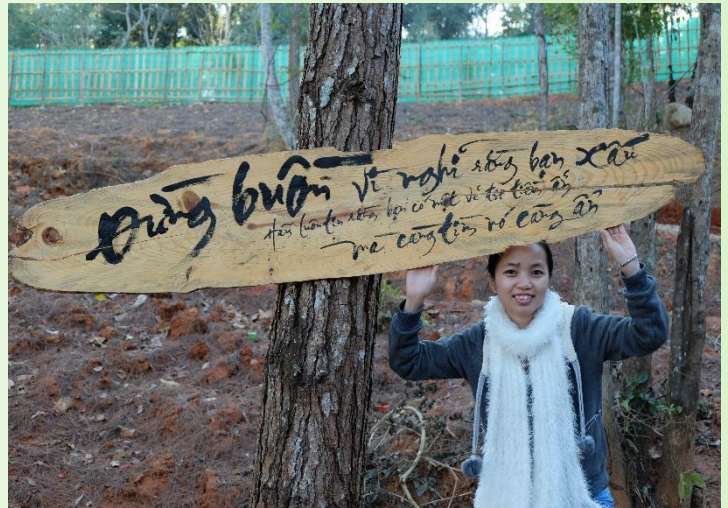 Đừng buồn vì nghĩ rằng bạn xấu
Hãy luôn tin rằng bạn có một vẻ đẹp tiềm ẩn
mà càng tìm nó càng ẩn